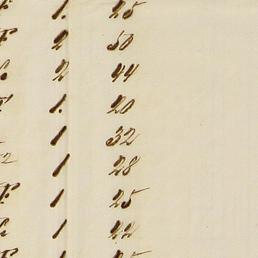 1. 25
2 50
2 44
1. 20
1 32
1 28
1 25
1 22